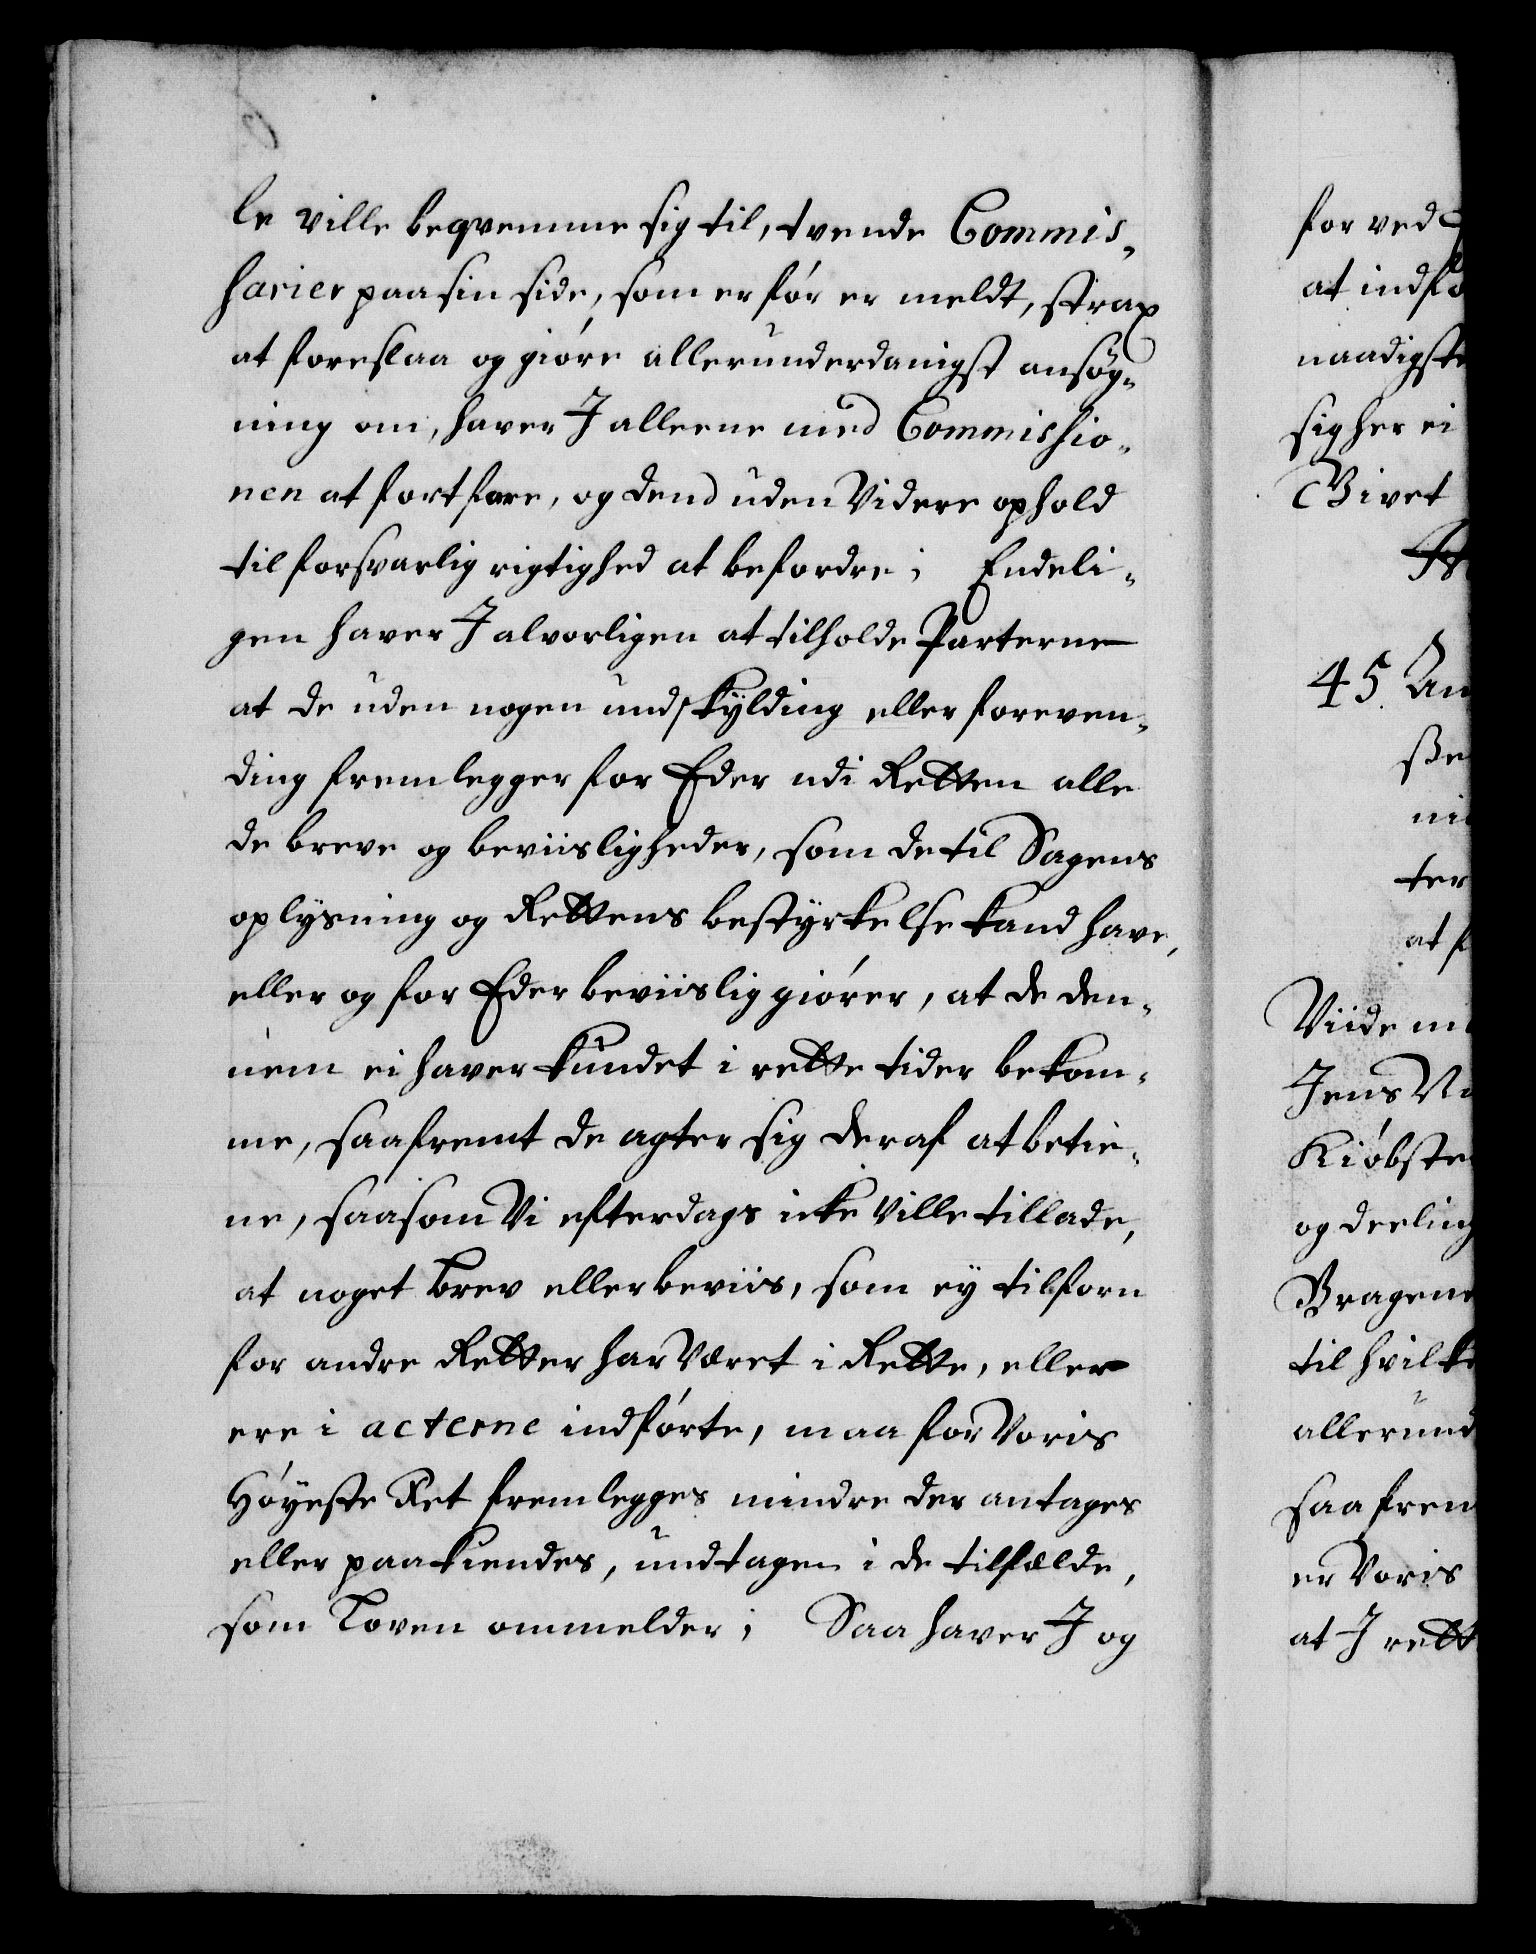 le ville beqvemme sig til, tvende Commis-
sarier paa sin side, som er før er meldt, strax
at foreslaa og giøre allerunderdanigst ansøg-
ning om, haver I alleene med Commissio-
nen at fortfare, og dend uden Videre ophold
til forsvarlig rigtighed at befordre; Endeli-
gen haver I alvorligen at tilholde Parterne
at de uden nogen undskylding eller foreven-
ding fremlegger for Eder udi Retten alle
de breve og beviisligheder, som de til Sagens
oplysning og Rettens bestyrkelse kand have,
eller og for Eder beviislig giører, at de den-
nem ei haver kundet i rette tider bekom-
me, saafremt de agter sig deraf at betie-
ne, saasom Vi efterdags icke Ville tillade,
at noget brev eller beviis, som ey tilforn
for andre Retter har Været i Rette, eller
ere i acterne indførte, maa for Voris
Høyeste Ret fremlegges mindre der antages
eller paakiendes, undtagen i de tilfælde,
som Loven ommelder; Saa haver I og
for ved
at indfø
naadigste
sig her ei
Givet
45. An
ße
ni
ter
at f
Viide m
Jens N
Kiøbste
og deeling
Bragene
til hvilke
allerund
saafrem
er Voris
at I rett